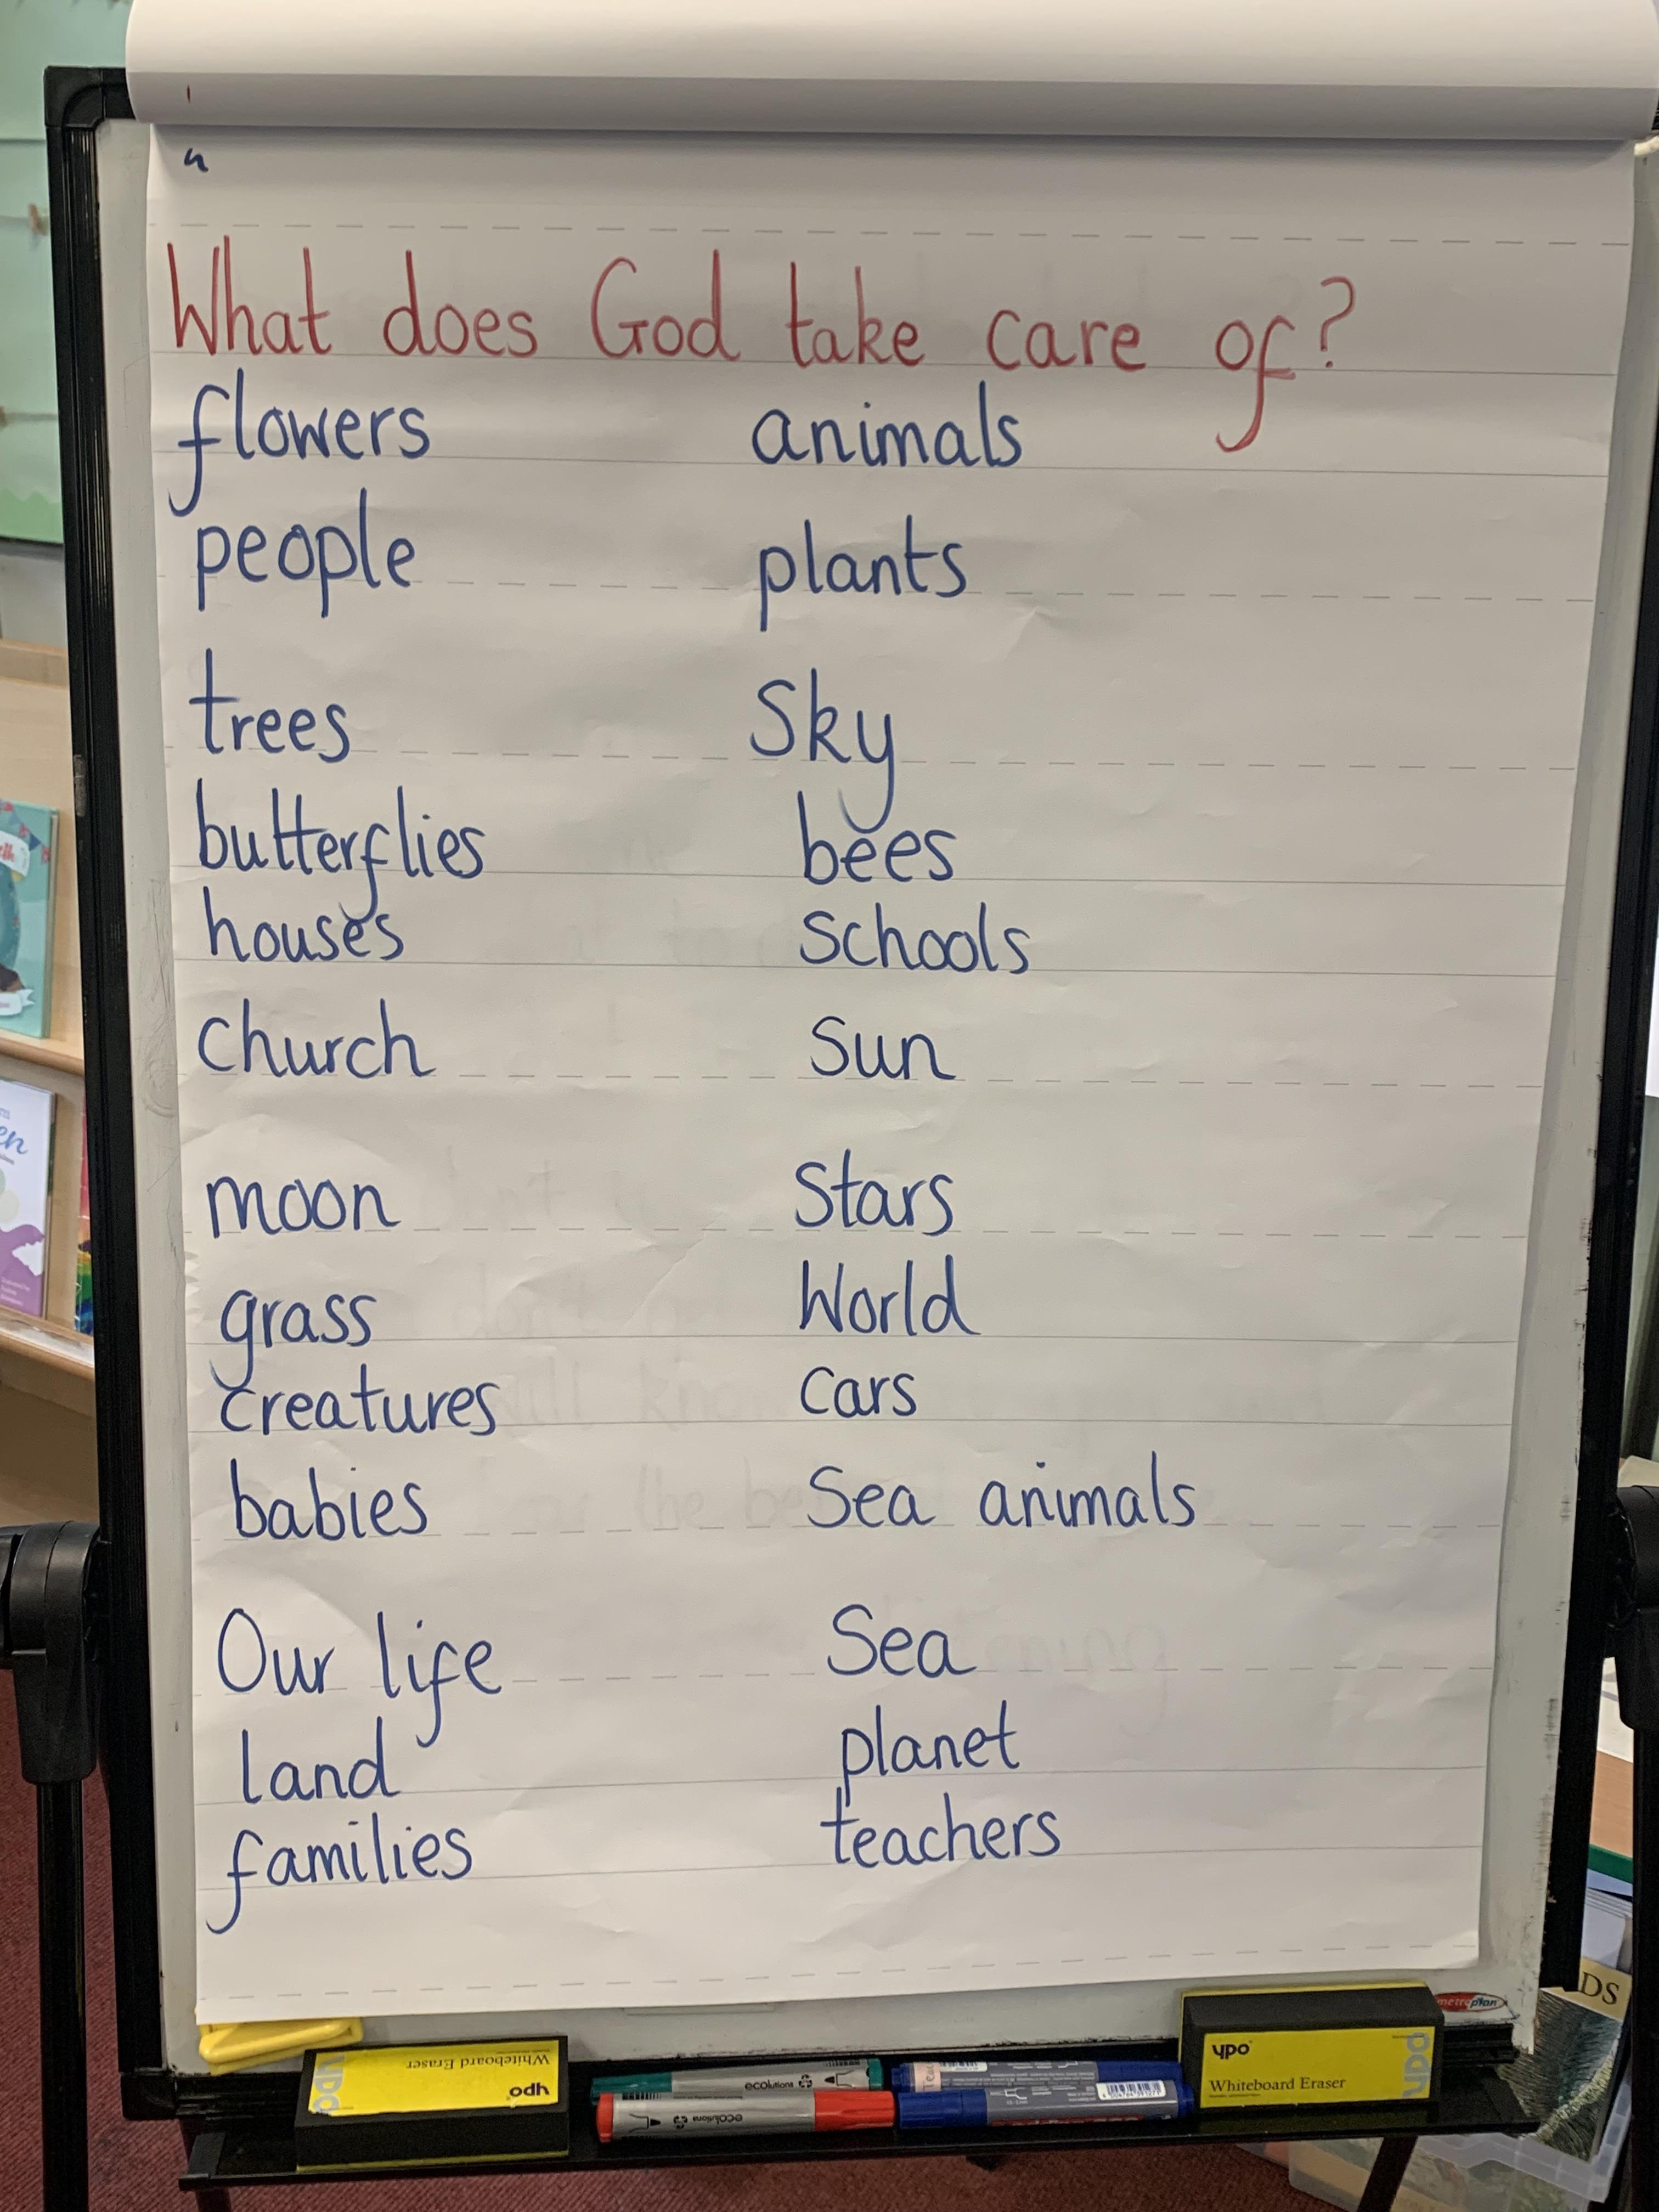 What does God take care of?
flowers animals
people plants
trees Sky
butterflies bees
houses Schools
church Sun
moon Stars
grass World
creatures cars
babies Sea animals
Our life Sea
land planet
families teachers
metroplan
DS
ypo
Whiteboard Eraser
ypo
Whiteboard Eraser
ecolutions
ecolutions